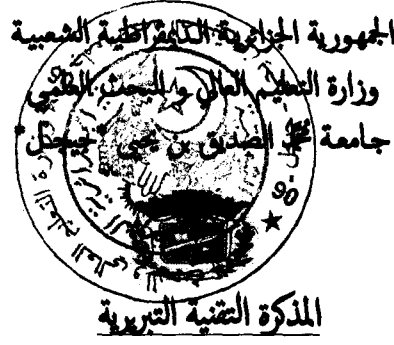 الجمهورية الجزائرية الديمقراطية الشعبية
وزارة التعليم العالي و البحث العلمي
جامعة محمد الصديق بن يحيى "جيجل"
90
المذكرة التقنية التبريرية